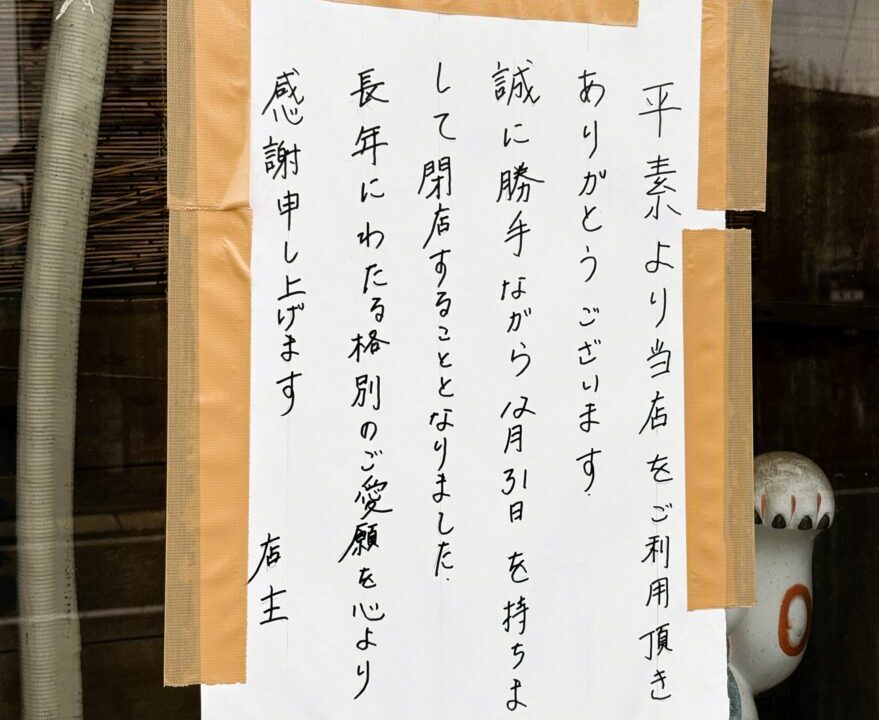 平素より当店をご利用頂き
ありがとうございます.
誠に勝手ながら12月31日を持ちま
して閉店することとなりました.
長年にわたる格別のご愛願を心より
感謝申し上げます
店主